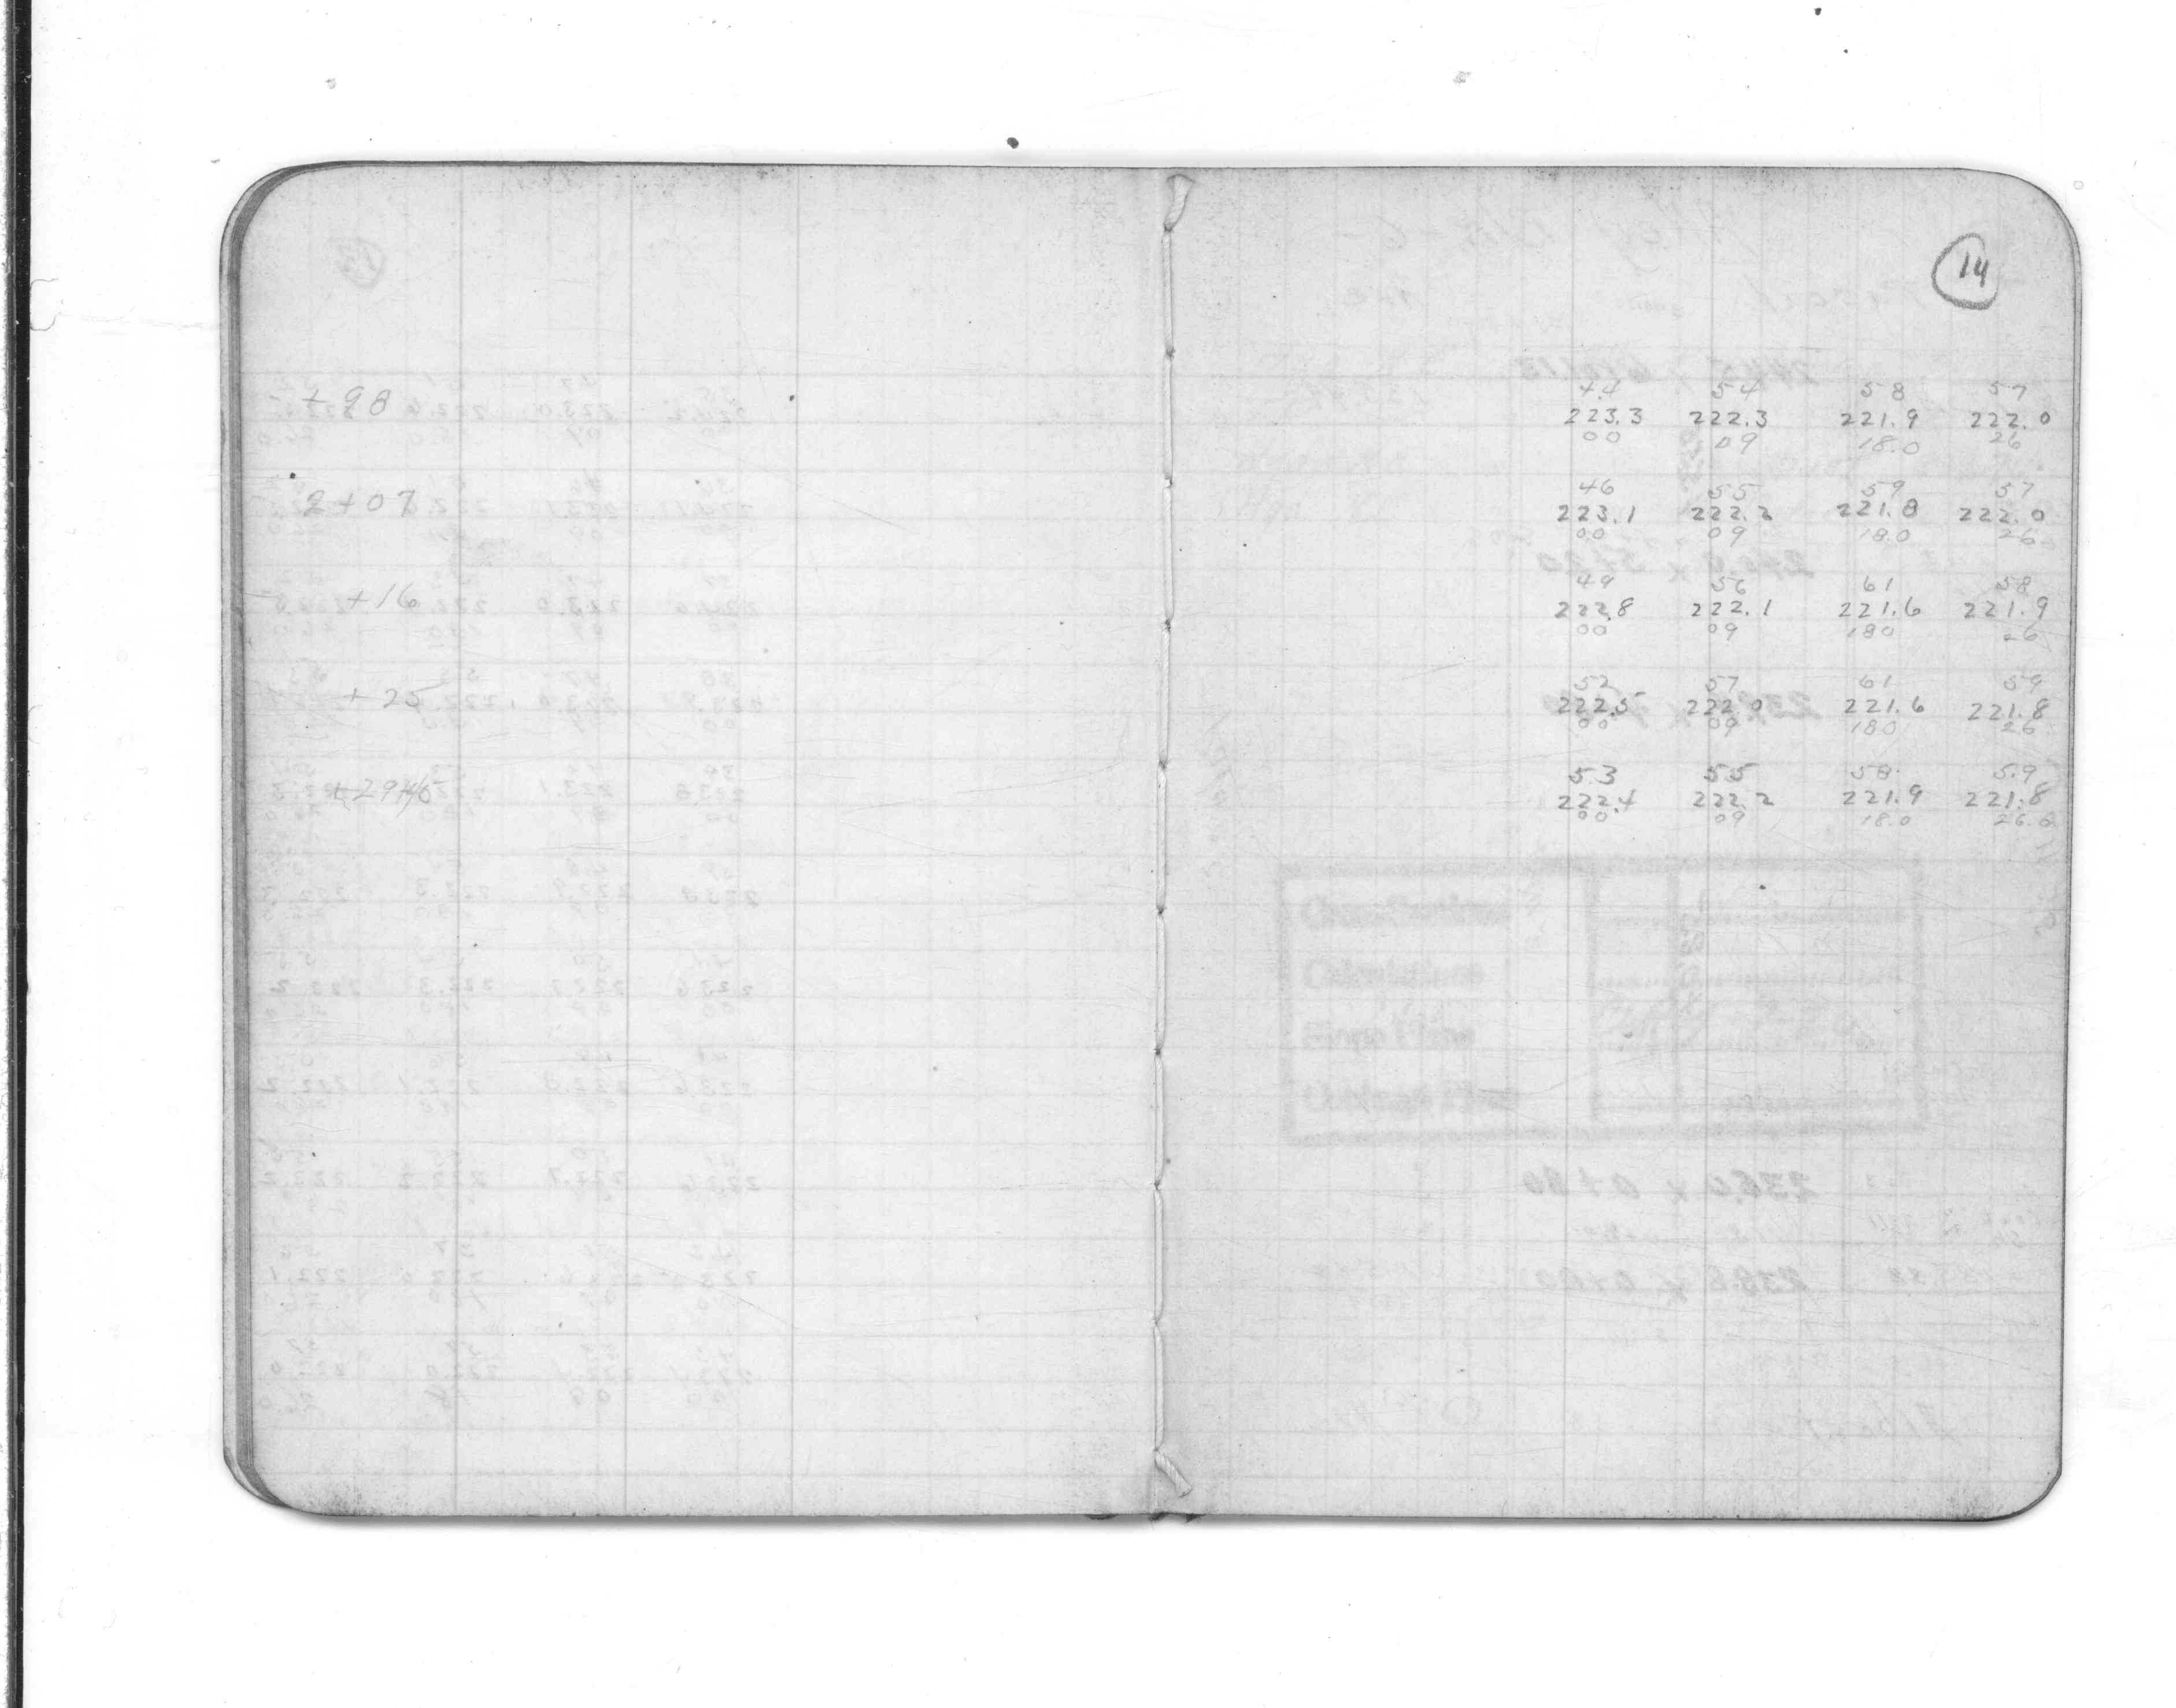 14
+ 98
44 54 58 57
223.3 222.3 221.9 222.0
00 09 18.0 26
2+07
46 55 59 57
223.1 222.2 221.8 222.0
00 09 18.0 26
+16
49 56 61 58
222.8 222.1 221.6 221.9
00 09 180 26
+ 25
52 57 61 59
222.5 222.0 221.6 221.8
00 09 180 26
53 55 58 5.9
222.4 222.2 221.9 221.8
00 09 18.0 26.0